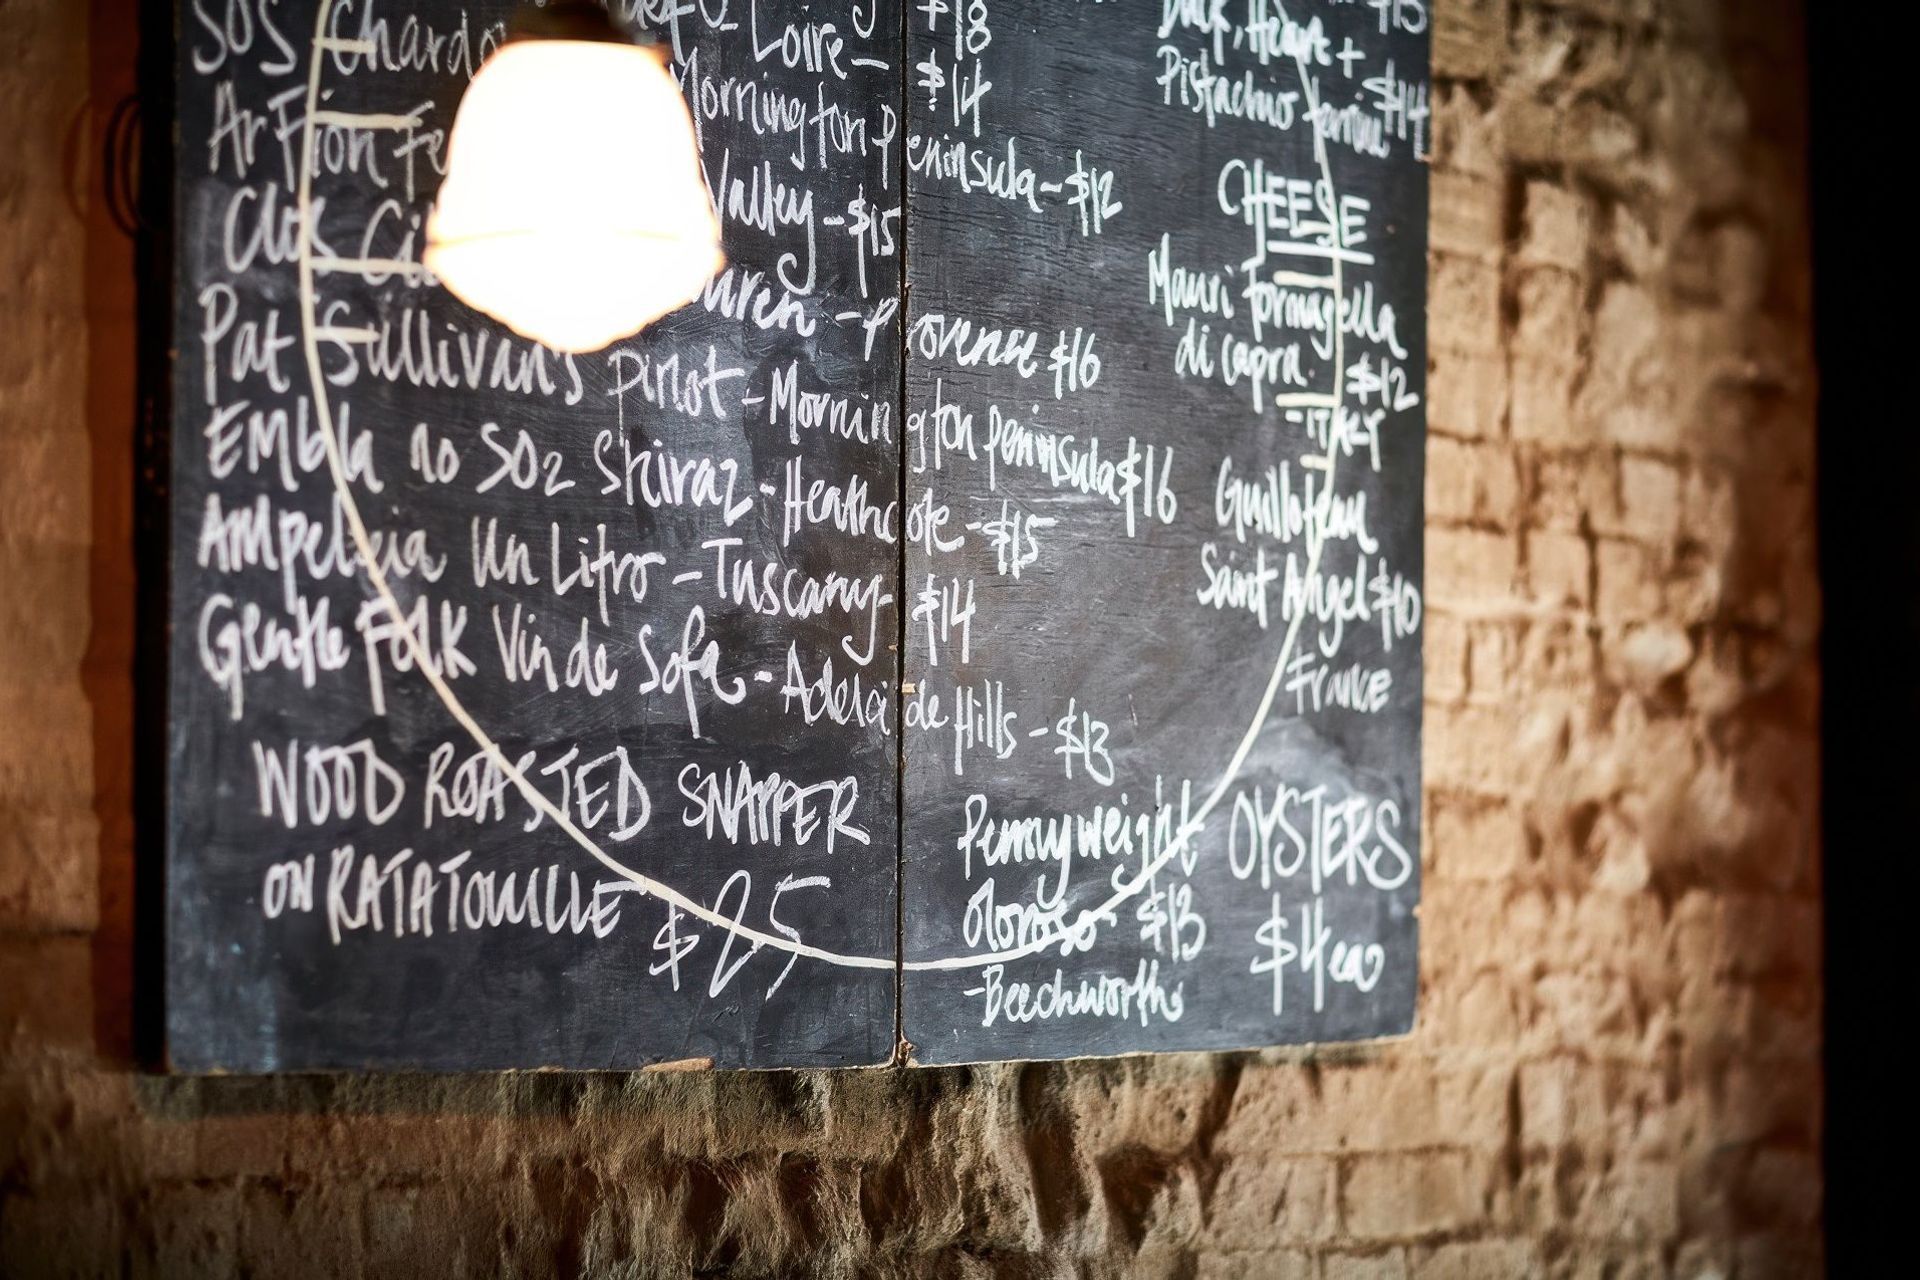 SOS Chardo
Loire –
$18
$14
Ar Fion Fe
Mornington Peninsula – $12
Clos Ci
Valley – $15
Provence $16
Pat Sullivan's Pinot – Mornington Peninsula $16
Embla no SO2 Shiraz – Heathcote – $15
Ampeleia Un Litro – Tuscany – $14
Gentle Folk Vin de Sofa – Adelaide Hills – $13
WOOD ROASTED SNAPPER
ON RATATOUILLE $25
Pennyweight
Oloroso $13
– Beechworth
$15
Duck, Heart +
Pistachio terrine $14
CHEESE
Mauri formagella
di capra $12
– ITALY
Guilloteau
Saint Angel $10
France
OYSTERS
$4ea